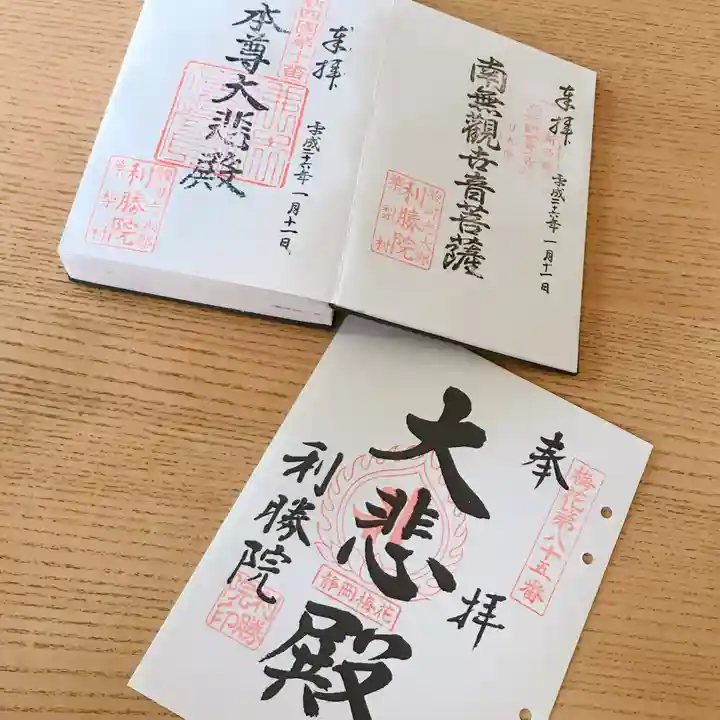 奉拝
平成二十六年一月十一日
南無観世音菩薩
利勝院
奉拝
平成二十六年一月十一日
本尊大悲殿
利勝院
奉拝
梅花第八十五番
大悲殿
静岡梅花
利勝院
利勝院印